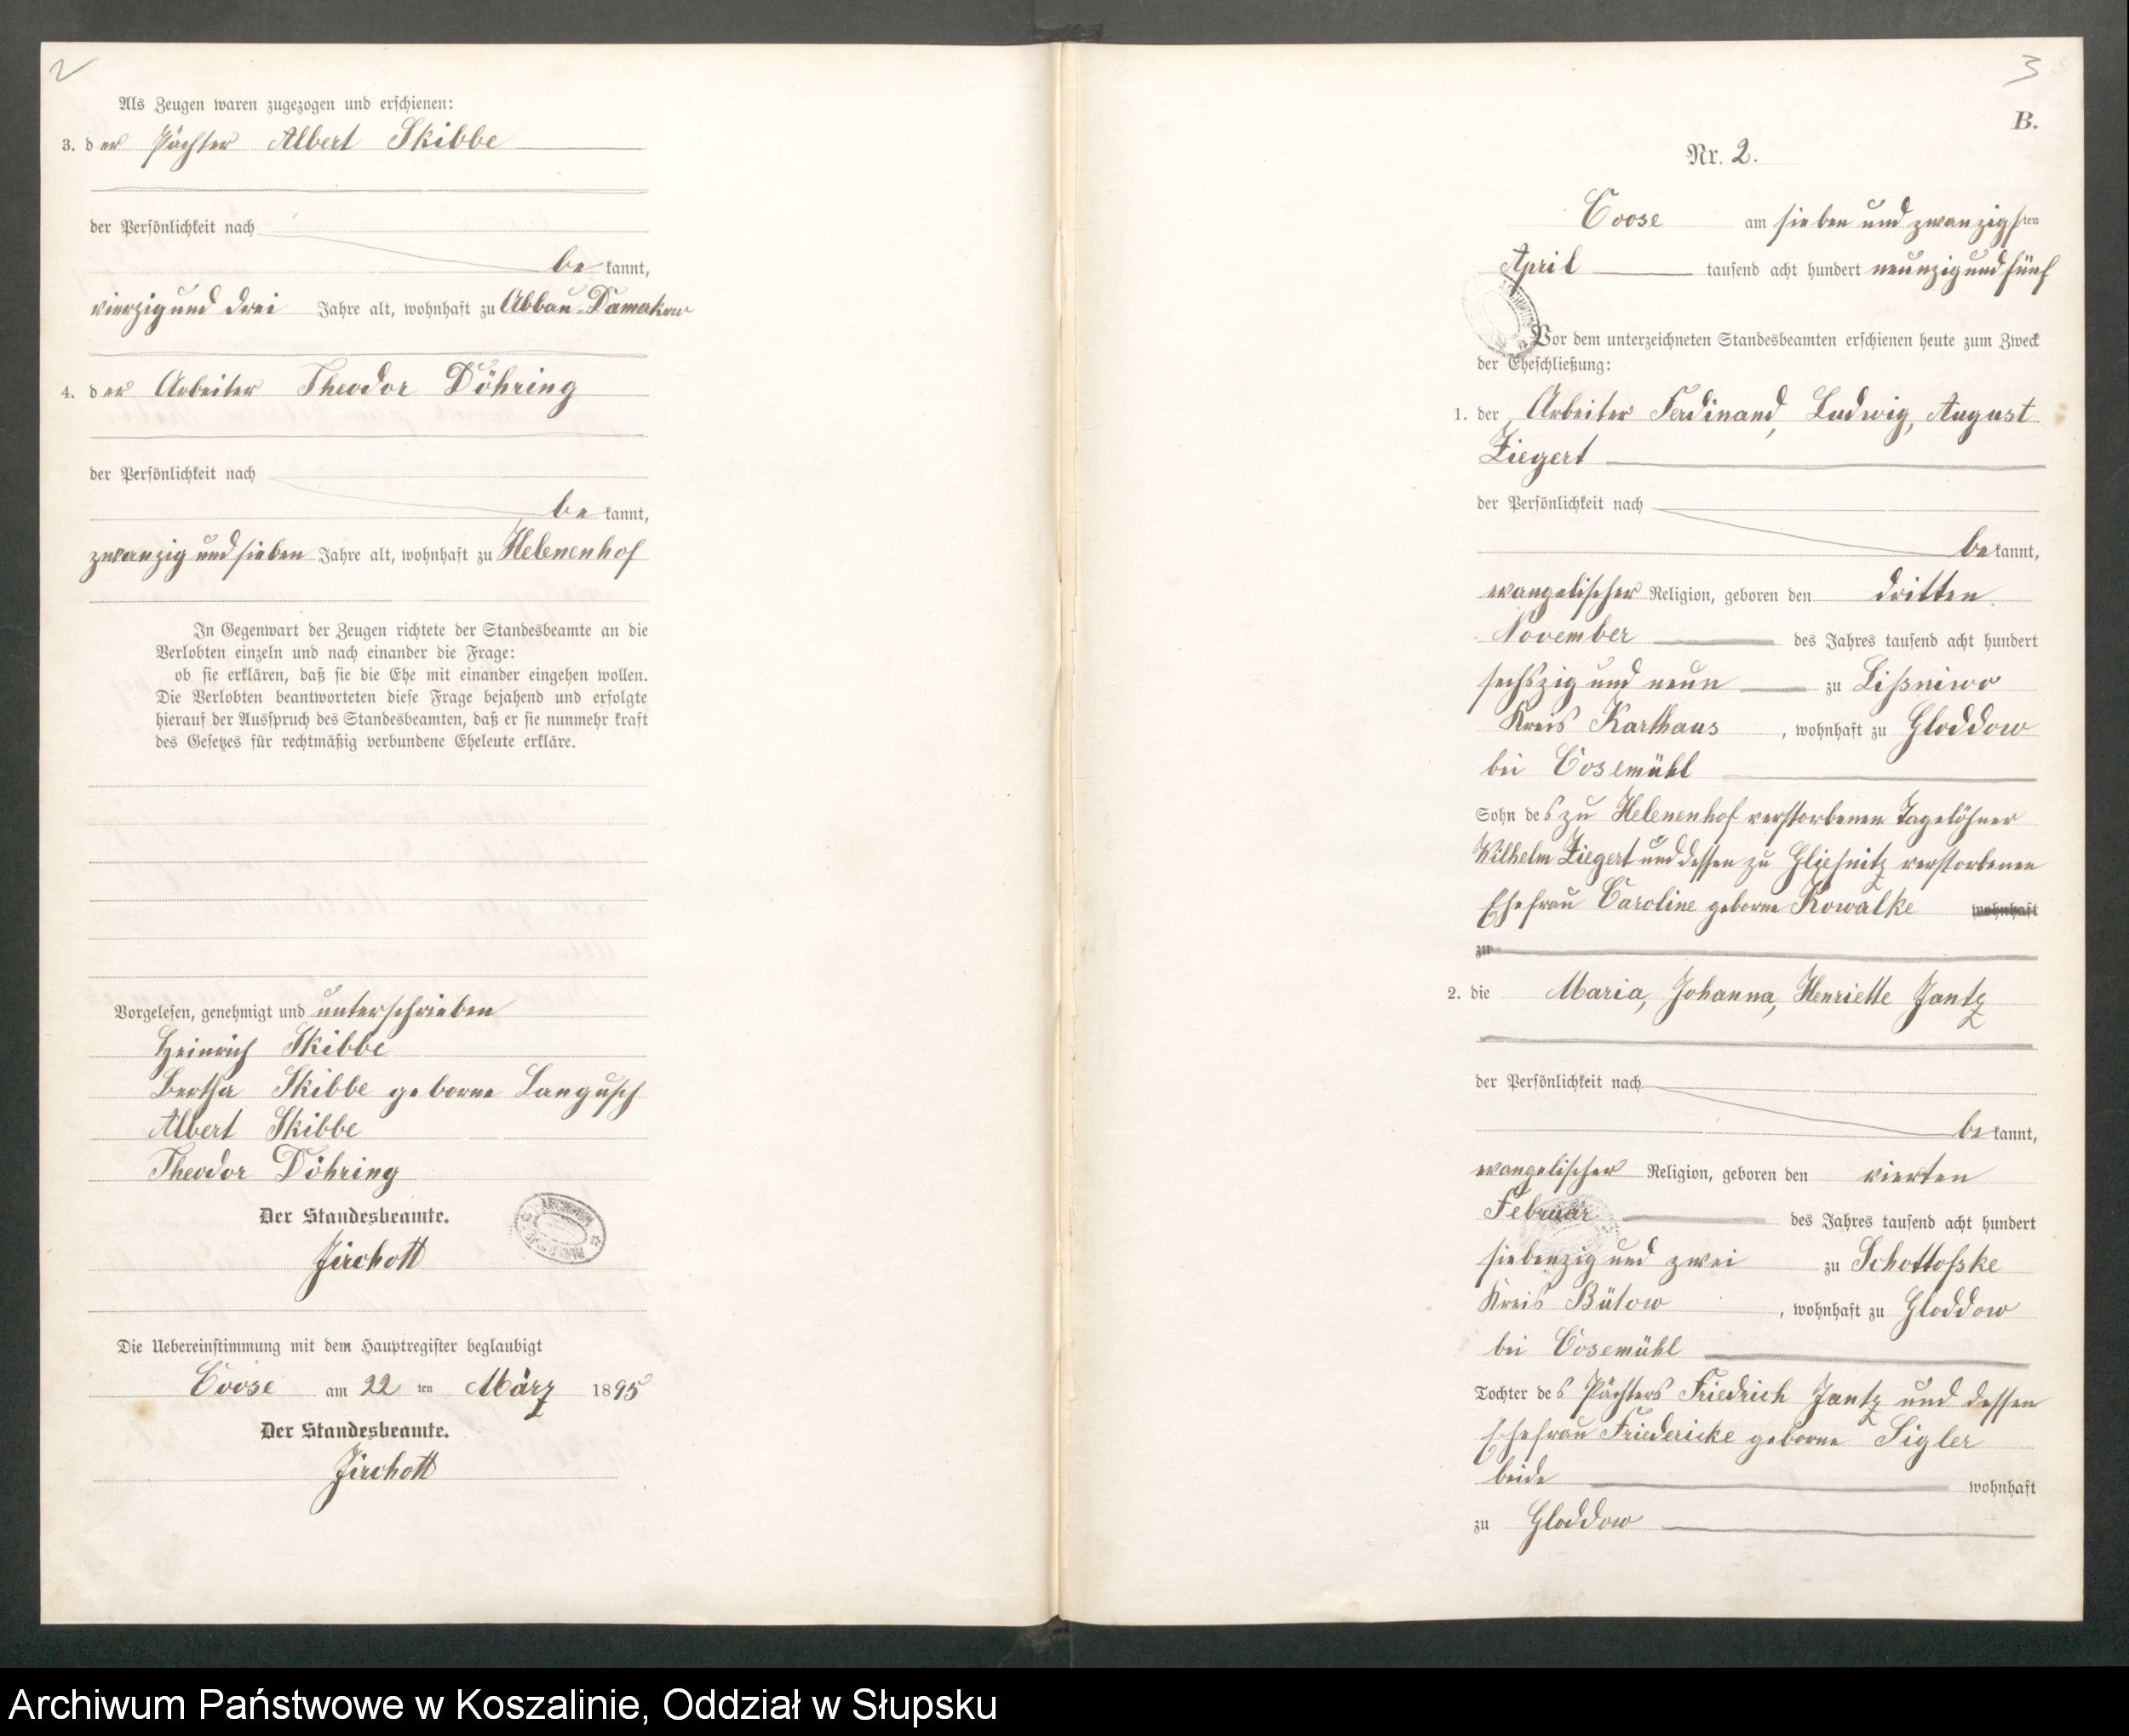 2
Als Zeugen waren zugezogen und erschienen:
3. der Pächter Albert Skibbe
der Persönlichkeit nach
bekannt,
vierzig und drei Jahre alt, wohnhaft zu Abbau-Damerkow
4. der Arbeiter Theodor Döhring
der Persönlichkeit nach
bekannt,
zwanzig und sieben Jahre alt, wohnhaft zu Helenenhof
In Gegenwart der Zeugen richtete der Standesbeamte an die
Verlobten einzeln und nach einander die Frage:
ob sie erklären, daß sie die Ehe mit einander eingehen wollen.
Die Verlobten beantworteten diese Frage bejahend und erfolgte
hierauf der Ausspruch des Standesbeamten, daß er sie nunmehr kraft
des Gesetzes für rechtmäßig verbundene Eheleute erkläre.
Vorgelesen, genehmigt und unterschrieben
Heinrich Skibbe
Bertha Skibbe geborne Langusch
Albert Skibbe
Theodor Döhring
Der Standesbeamte.
Jirchott
Die Uebereinstimmung mit dem Hauptregister beglaubigt
Coose am 22ten März 1895
Der Standesbeamte.
Jirchott
3
B.
Nr. 2.
Coose am sieben und zwanzigsten
April tausend acht hundert neunzig und fünf
Vor dem unterzeichneten Standesbeamten erschienen heute zum Zweck
der Eheschließung:
1. der Arbeiter Ferdinand, Ludwig, August
Ziegert
der Persönlichkeit nach
bekannt,
evangelischer Religion, geboren den dritten
November des Jahres tausend acht hundert
sechszig und neun zu Lißniwo
Kreis Karthaus, wohnhaft zu Gloddow
bei Cosemühl
Sohn des zu Helenenhof verstorbenen Tagelöhner
Wilhelm Ziegert und dessen zu Gliesnitz verstorbenen
Ehefrau Caroline geborne Kowalke wohnhaft
zu
2. die Maria, Johanna, Henriette Jantz
der Persönlichkeit nach
bekannt,
evangelischer Religion, geboren den vierten
Februar des Jahres tausend acht hundert
siebenzig und zwei zu Schottofske
Kreis Bütow, wohnhaft zu Gloddow
bei Cosemühl
Tochter des Pächters Friedrich Jantz und dessen
Ehefrau Friedericke geborne Sigler
beide wohnhaft
zu Gloddow
Archiwum Państwowe w Koszalinie, Oddział w Słupsku